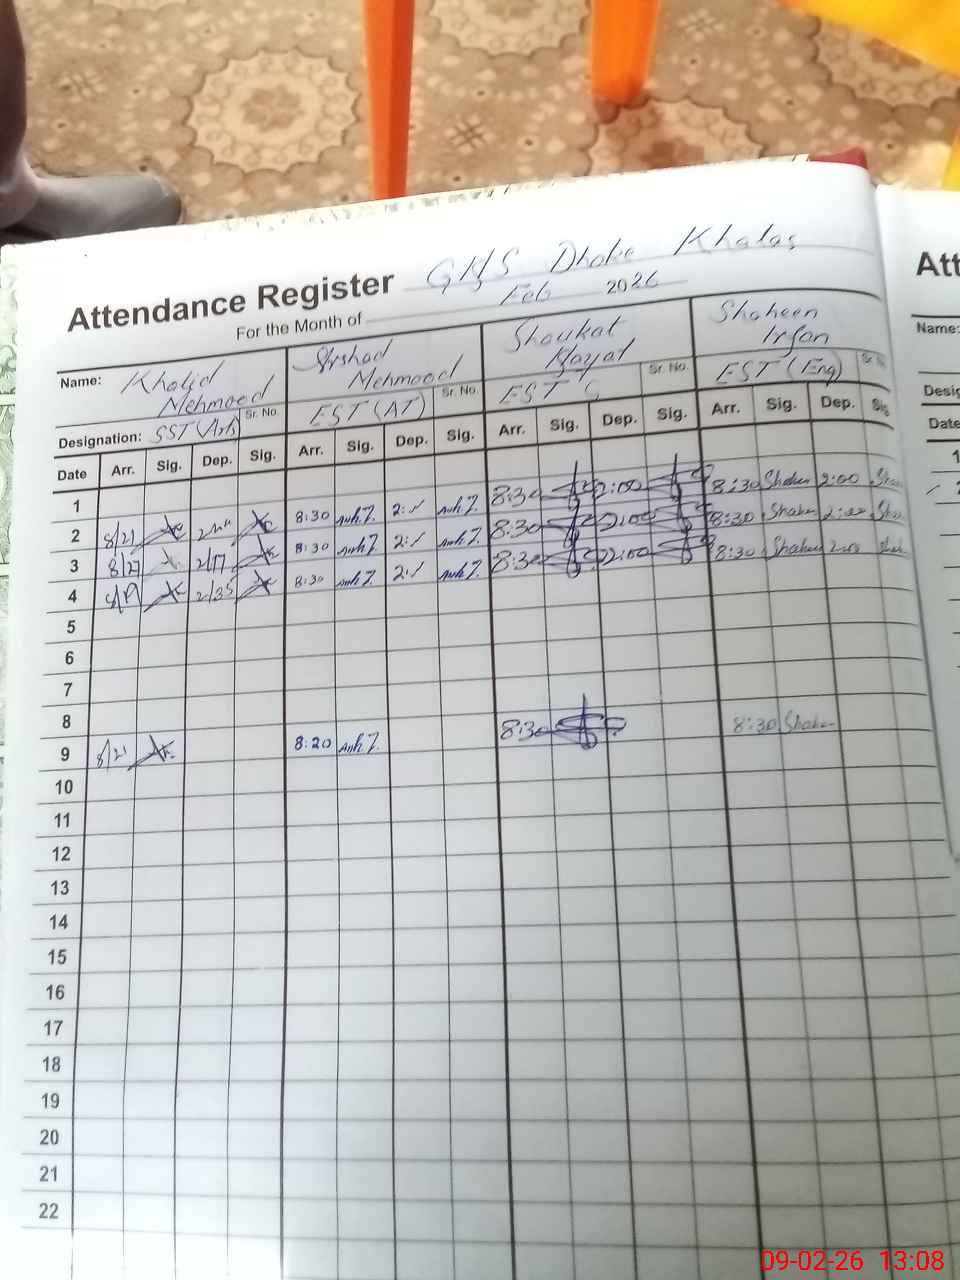 Attendance Register GHS Dhoke Khalas
For the Month of Feb 2026
Name: Khalid Mehmood Arshad Mehmood Shoukat Hayat Shaheen Irfan
Sr. No. Sr. No. Sr. No. Sr. No.
Designation: SST (Arts) EST (AT) EST C EST (Eng)
Date Arr. Sig. Dep. Sig. Arr. Sig. Dep. Sig. Arr. Sig. Dep. Sig. Arr. Sig. Dep. Sig.
1
2 8/21 8:30 8:30 2:00 8:30 Shaheen 2:00
3 8/27 2/17 8:30 8:30 2:00 8:30 Shaheen 2:00
4 2/35 8:30 8:30 2:00 8:30 Shaheen 2:00
5
6
7
8
9 8/21 8:20 8:30 8:30 Shaheen
10
11
12
13
14
15
16
17
18
19
20
21
22
Att
Name:
Desig
Date
1
09-02-26 13:08